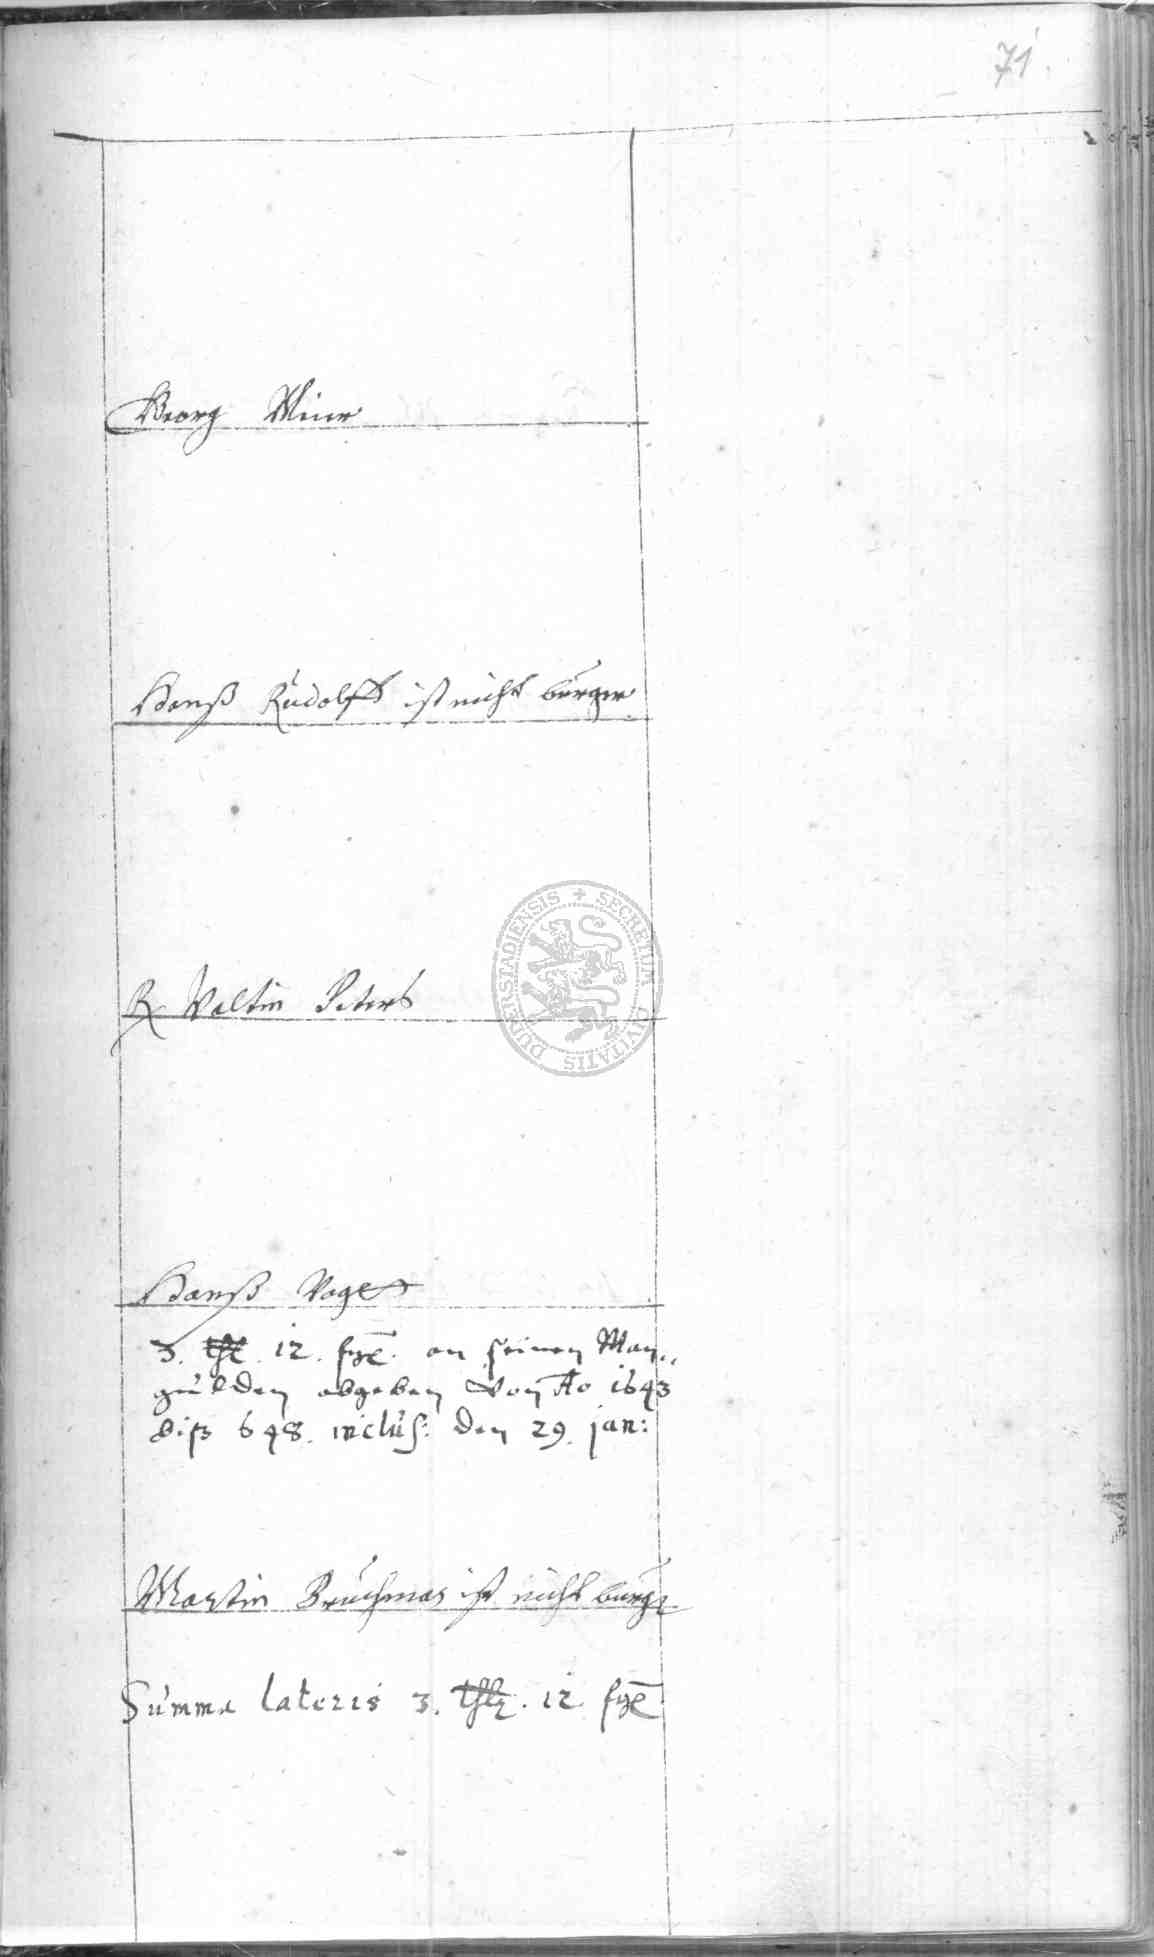 71.
Georg
Hanß Rudolff ist nicht burger
Valtin Peters
SECRETUM CIVITATIS DUDERSTADIENSIS
Hanß Voget
3. thl. 12. fgl. an seinen Man„
gulden abgeben Von Ao 1643
biß 648. inclus: den 29. jan:
Martin ist nicht burger
Summa lateris 3. thlr. 12 fgl